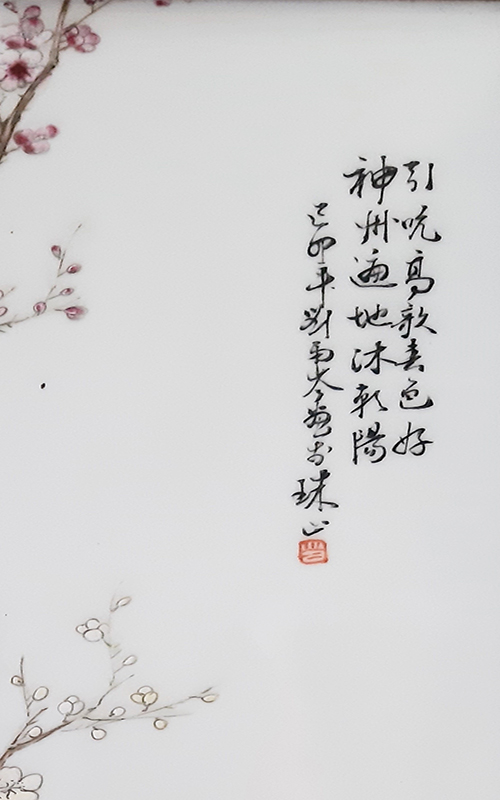 引吭高歌春色好
神州遍地沐朝陽
己卯年劉雨岑画於珠山